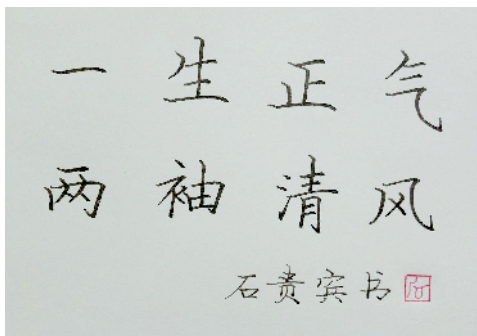 一生正气
两袖清风
石贵宾书